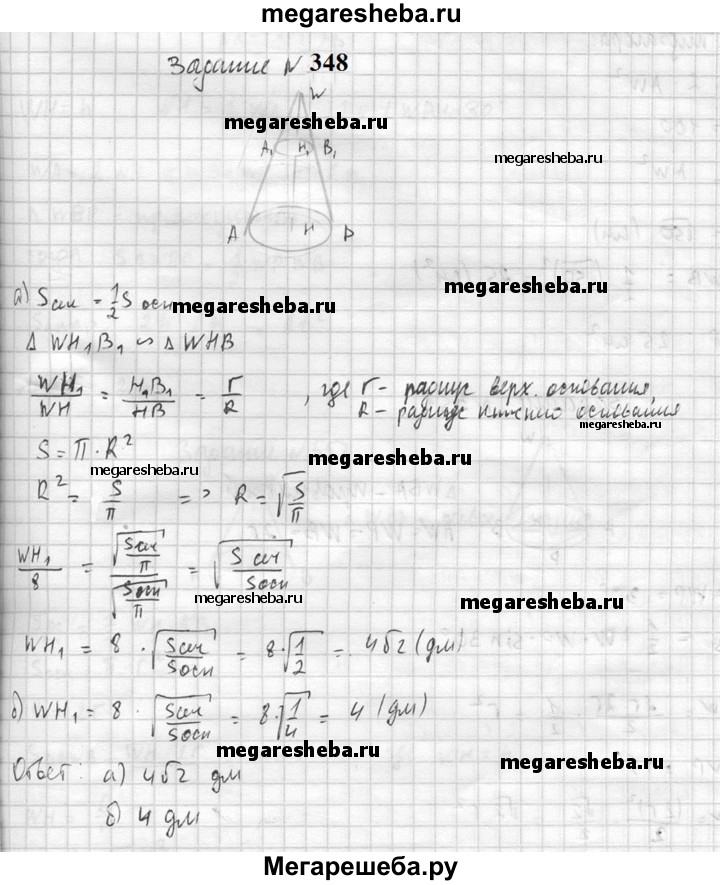 megaresheba.ru
Задание N 348
W
megaresheba.ru
A₁ H₁ B₁
megaresheba.ru
A H B
megaresheba.ru
а) Sсеч = 1/2 S осн
megaresheba.ru
Δ WH₁B₁ ∽ Δ WHB
WH₁/WH = H₁B₁/HB = r/R , где r - радиус верх. основания,
R - радиус нижнего основания
megaresheba.ru
S = π · R²
megaresheba.ru
megaresheba.ru
R² = S/π => R = √(S/π)
WH₁/8 = √(Sсеч/π)/√(Sосн/π) = √(Sсеч/Sосн)
megaresheba.ru
megaresheba.ru
WH₁ = 8 · √(Sсеч/Sосн) = 8·√(1/2) = 4√2 (дм)
б) WH₁ = 8 · √(Sсеч/Sосн) = 8·√(1/4) = 4 (дм)
megaresheba.ru
megaresheba.ru
Ответ: а) 4√2 дм
б) 4 дм
Мегарешеба.ру